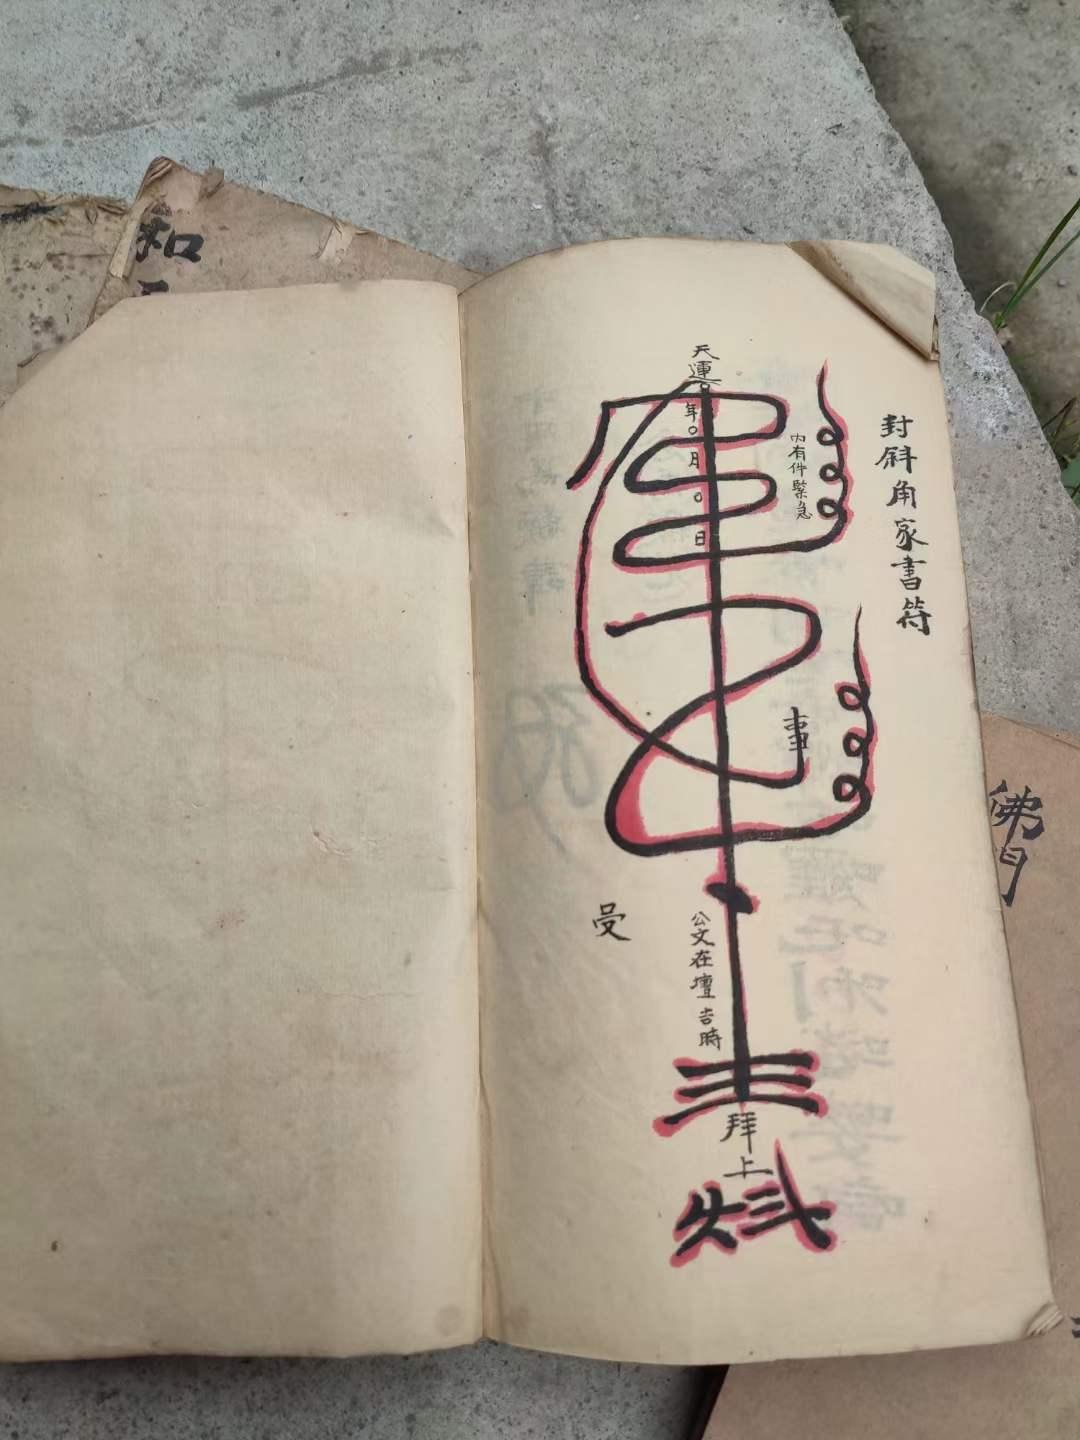 封斜角家書符
天運〇年〇月〇日
內有件緊急
事
公文在壇吉時
受
拜上
和
佛門